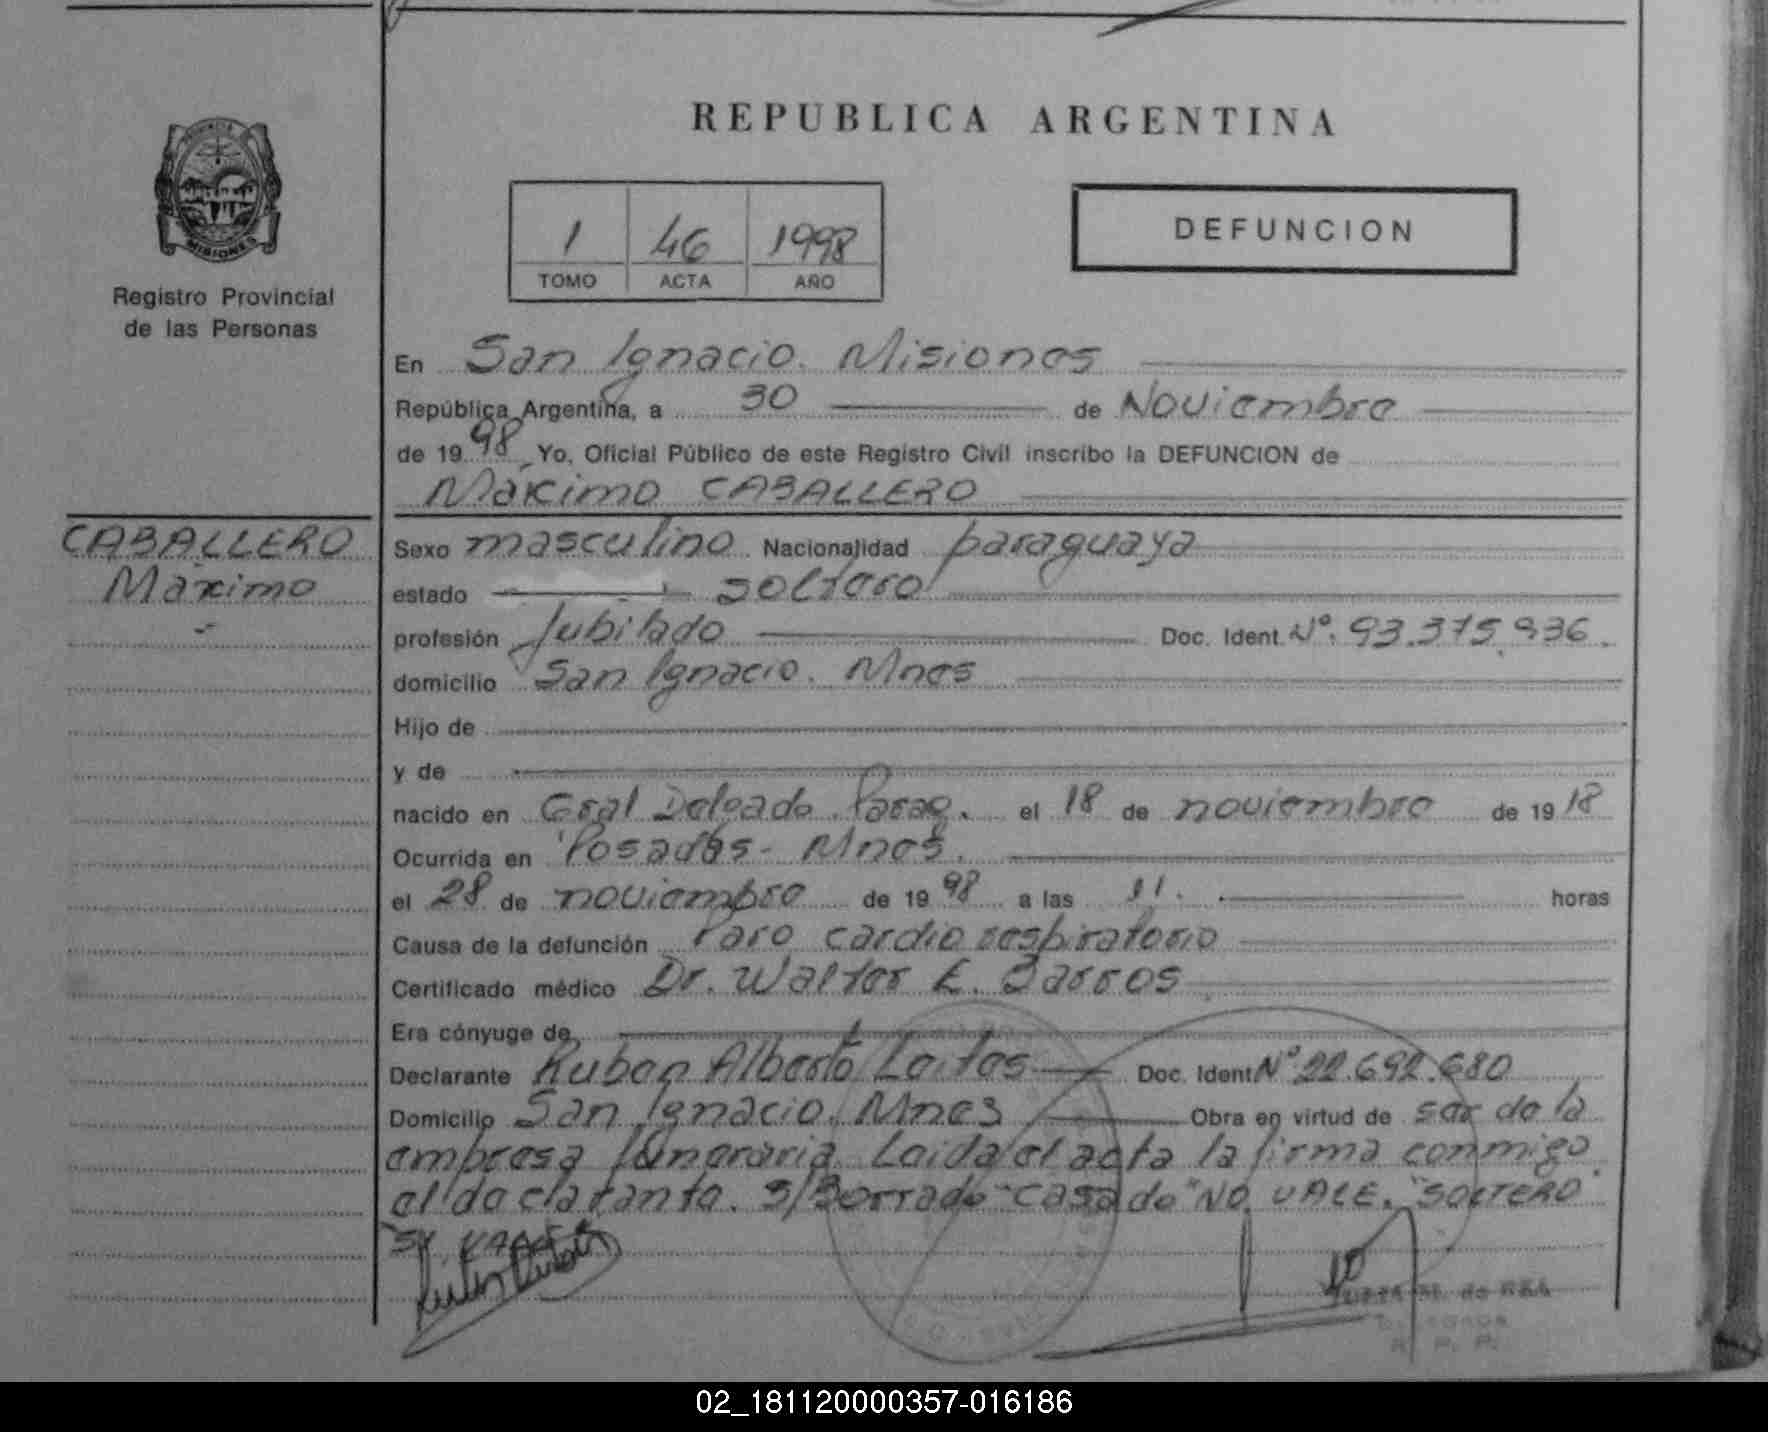 REPUBLICA ARGENTINA
PROVINCIA DE
MISIONES
Registro Provincial
de las Personas
1 46 1998
TOMO ACTA AÑO
DEFUNCION
En San Ignacio. Misiones
República Argentina, a 30 de Noviembre
de 1998, Yo, Oficial Público de este Registro Civil inscribo la DEFUNCION de
Maximo CABALLERO
CABALLERO
Maximo
Sexo masculino Nacionalidad paraguaya
estado soltero
profesión Jubilado Doc. Ident. Nº. 93.375.936.
domicilio San Ignacio. Mnes
Hijo de
y de
nacido en Gral Delgado. Parag. el 18 de noviembre de 1918
Ocurrida en Posadas - Mnes.
el 28 de noviembre de 1998 a las 11. horas
Causa de la defunción Paro cardio respiratorio
Certificado médico Dr. Walter E. Barros
Era cónyuge de
Declarante Ruben Alberto Leites Doc. Ident Nº 22.692.680
Domicilio San Ignacio. Mnes Obra en virtud de ser de la
empresa funeraria. Leida el acta la firma conmigo
el declarante. S/Borrado "casado" NO VALE. "SOLTERO"
SI VALE
02_181120000357-016186